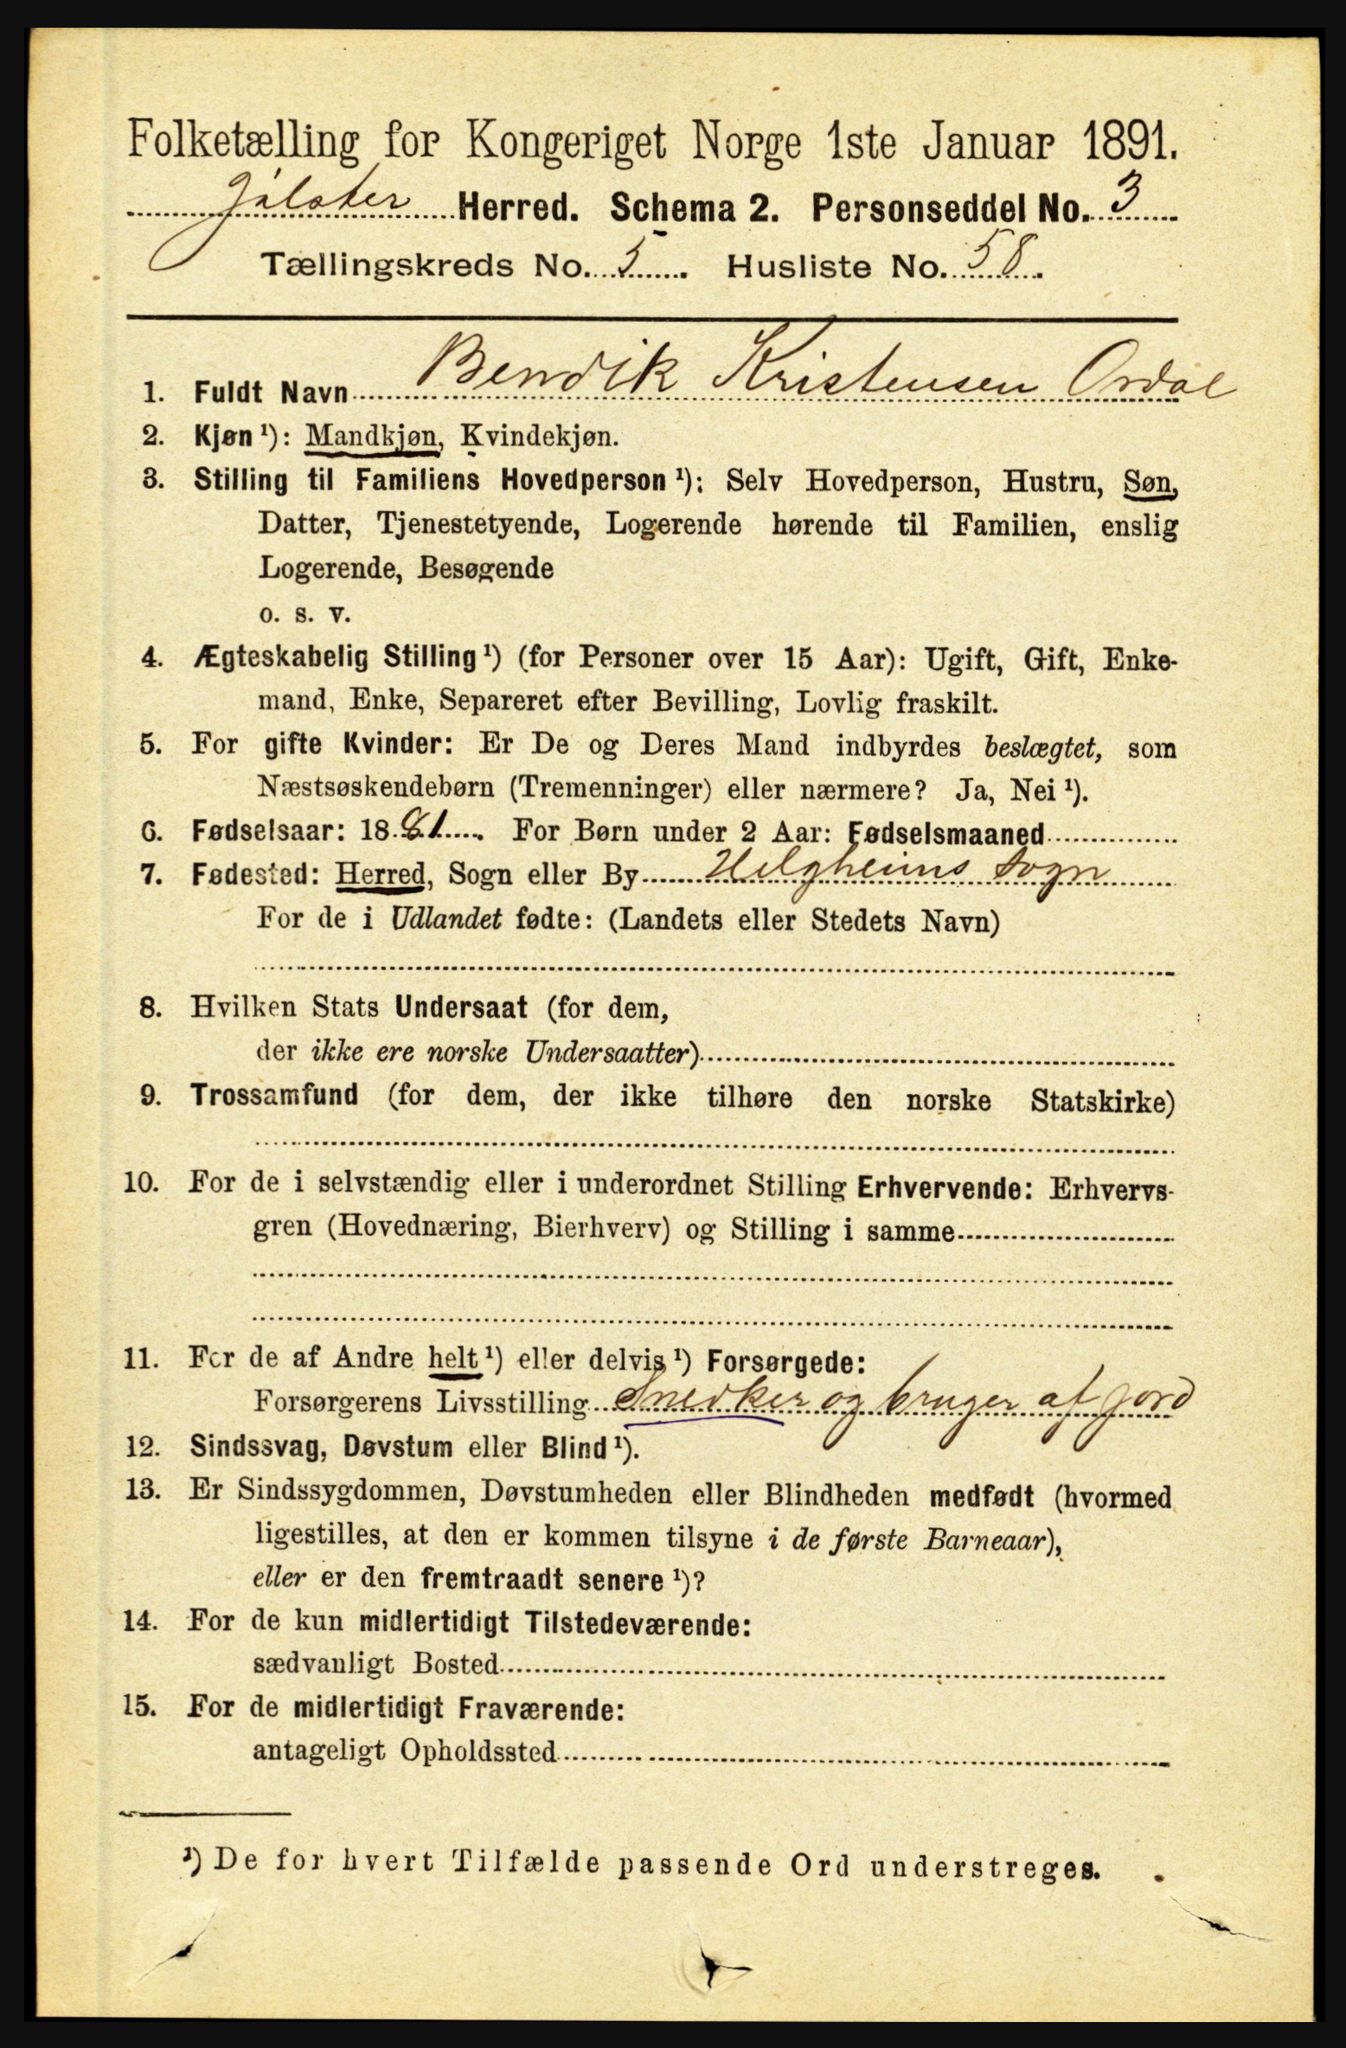 Folketælling for Kongeriget Norge 1ste Januar 1891.
Jølster Herred. Schema 2. Personseddel No. 3
Tællingskreds No. 5. Husliste No. 58.
1. Fuldt Navn Bendik Kristensen Ordal
2. Kjøn ¹): Mandkjøn, Kvindekjøn.
3. Stilling til Familiens Hovedperson ¹): Selv Hovedperson, Hustru, Søn,
Datter, Tjenestetyende, Logerende hørende til Familien, enslig
Logerende, Besøgende
o. s. v.
4. Ægteskabelig Stilling ¹) (for Personer over 15 Aar): Ugift, Gift, Enke-
mand, Enke, Separeret efter Bevilling, Lovlig fraskilt.
5. For gifte Kvinder: Er De og Deres Mand indbyrdes beslægtet, som
Næstsøskendebørn (Tremenninger) eller nærmere? Ja, Nei ¹).
6. Fødselsaar: 1881. For Børn under 2 Aar: Fødselsmaaned
7. Fødested: Herred, Sogn eller By Helgheims Sogn
For de i Udlandet fødte: (Landets eller Stedets Navn)
8. Hvilken Stats Undersaat (for dem,
der ikke ere norske Undersaatter)
9. Trossamfund (for dem, der ikke tilhøre den norske Statskirke)
10. For de i selvstændig eller i underordnet Stilling Erhvervende: Erhvervs-
gren (Hovednæring, Bierhverv) og Stilling i samme
11. For de af Andre helt ¹) eller delvis ¹) Forsørgede:
Forsørgerens Livsstilling Snedker og bruger af jord
12. Sindssvag, Døvstum eller Blind ¹).
13. Er Sindssygdommen, Døvstumheden eller Blindheden medfødt (hvormed
ligestilles, at den er kommen tilsyne i de første Barneaar),
eller er den fremtraadt senere ¹)?
14. For de kun midlertidigt Tilstedeværende:
sædvanligt Bosted
15. For de midlertidigt Fraværende:
antageligt Opholdssted
¹) De for hvert Tilfælde passende Ord understreges.